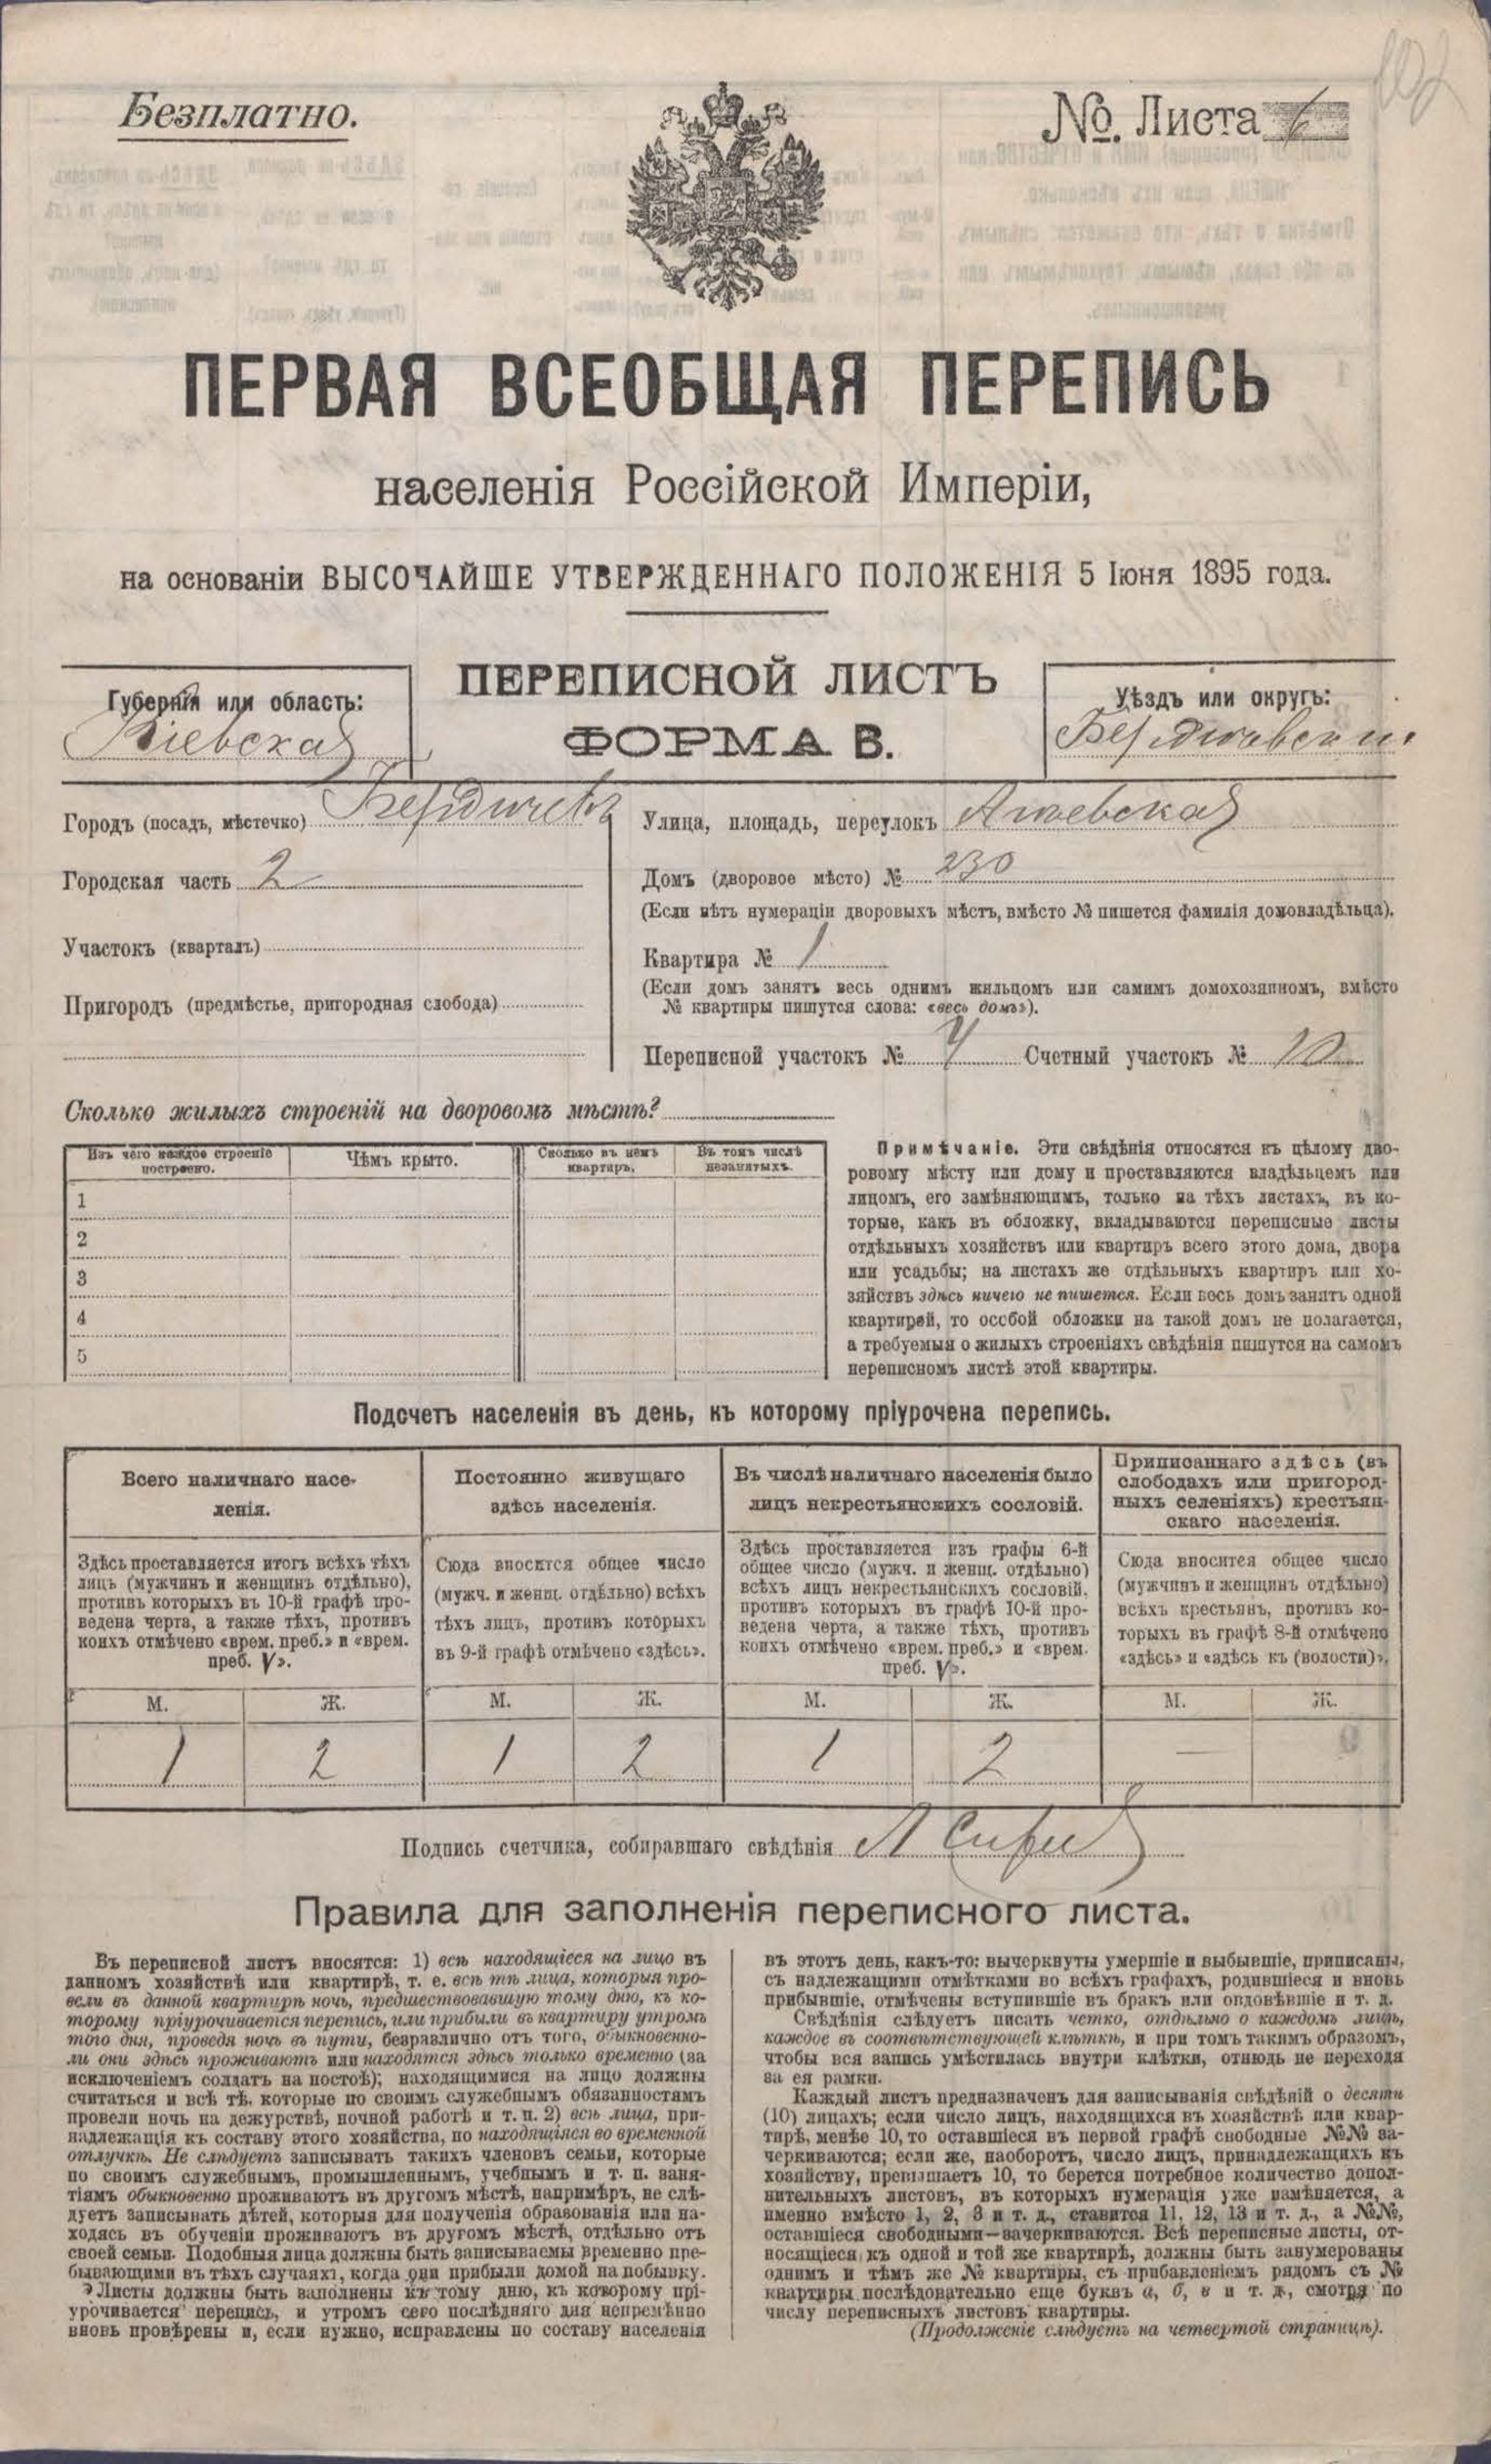 Безплатно.
№. Листа 6
ПЕРВАЯ ВСЕОБЩАЯ ПЕРЕПИСЬ
населенія Россійской Имперіи,
на основаніи ВЫСОЧАЙШЕ УТВЕРЖДЕННАГО ПОЛОЖЕНІЯ 5 Іюня 1895 года.
ПЕРЕПИСНОЙ ЛИСТЪ
ФОРМА В.
Губернія или область:
Кіевская
Уѣздъ или округъ:
Бердичевскій
Городъ (посадъ, мѣстечко) Бердичевъ
Городская часть 2
Участокъ (кварталъ)
Пригородъ (предмѣстье, пригородная слобода)
Улица, площадь, переулокъ
Домъ (дворовое мѣсто) № 230
(Если нѣтъ нумераціи дворовыхъ мѣстъ, вмѣсто № пишется фамилія домовладѣльца).
Квартира № 1
(Если домъ занятъ весь однимъ жильцомъ или самимъ домохозяиномъ, вмѣсто
№ квартиры пишутся слова: «весь домъ»).
Переписной участокъ № 4 Счетный участокъ № 10
Сколько жилыхъ строеній на дворовомъ мѣстѣ?
Изъ чего каждое строеніе
построено.
Чѣмъ крыто.
Сколько въ немъ
квартиръ.
Въ томъ числѣ
незанятыхъ.
1
2
3
4
5
Примѣчаніе. Эти свѣдѣнія относятся къ цѣлому дво-
ровому мѣсту или дому и проставляются владѣльцемъ или
лицомъ, его замѣняющимъ, только на тѣхъ листахъ, въ ко-
торые, какъ въ обложку, вкладываются переписные листы
отдѣльныхъ хозяйствъ или квартиръ всего этого дома, двора
или усадьбы; на листахъ же отдѣльныхъ квартиръ или хо-
зяйствъ здѣсь ничего не пишется. Если весь домъ занятъ одной
квартирой, то особой обложки на такой домъ не полагается,
а требуемыя о жилыхъ строеніяхъ свѣдѣнія пишутся на самомъ
переписномъ листѣ этой квартиры.
Подсчетъ населенія въ день, къ которому пріурочена перепись.
Всего наличнаго насе-
ленія.
Здѣсь проставляется итогъ всѣхъ тѣхъ
лицъ (мужчинъ и женщинъ отдѣльно),
противъ которыхъ въ 10-й графѣ про-
ведена черта, а также тѣхъ, противъ
коихъ отмѣчено «врем. преб.» и «врем.
преб. V».
Постоянно живущаго
здѣсь населенія.
Сюда вносится общее число
(мужч. и женщ. отдѣльно) всѣхъ
тѣхъ лицъ, противъ которыхъ
въ 9-й графѣ отмѣчено «здѣсь».
Въ числѣ наличнаго населенія было
лицъ некрестьянскихъ сословій.
Здѣсь проставляется изъ графы 6-й
общее число (мужч. и женщ. отдѣльно)
всѣхъ лицъ некрестьянскихъ сословій,
противъ которыхъ въ графѣ 10-й про-
ведена черта, а также тѣхъ, противъ
коихъ отмѣчено «врем. преб.» и «врем.
преб. V».
Приписаннаго здѣсь (въ
слободахъ или пригород-
ныхъ селеніяхъ) крестьян-
скаго населенія.
Сюда вносится общее число
(мужчинъ и женщинъ отдѣльно)
всѣхъ крестьянъ, противъ ко-
торыхъ въ графѣ 8-й отмѣчено
«здѣсь» и «здѣсь къ (волости)».
М. Ж. М. Ж. М. Ж. М. Ж.
1 2 1 2 1 2 —
Подпись счетчика, собиравшаго свѣдѣнія
Правила для заполненія переписного листа.
Въ переписной листъ вносятся: 1) всѣ находящіеся на лицо въ
данномъ хозяйствѣ или квартирѣ, т. е. всѣ тѣ лица, которыя про-
вели въ данной квартирѣ ночь, предшествовавшую тому дню, къ ко-
торому пріурочивается перепись, или прибыли въ квартиру утромъ
того дня, проведя ночь въ пути, безразлично отъ того, обыкновенно-
ли они здѣсь проживаютъ или находятся здѣсь только временно (за
исключеніемъ солдатъ на постоѣ); находящимися на лицо должны
считаться и всѣ тѣ, которые по своимъ служебнымъ обязанностямъ
провели ночь на дежурствѣ, ночной работѣ и т. п. 2) всѣ лица, при-
надлежащія къ составу этого хозяйства, но находящіяся во временной
отлучкѣ. Не слѣдуетъ записывать такихъ членовъ семьи, которые
по своимъ служебнымъ, промышленнымъ, учебнымъ и т. п. заня-
тіямъ обыкновенно проживаютъ въ другомъ мѣстѣ, напримѣръ, не слѣ-
дуетъ записывать дѣтей, которыя для полученія образованія или на-
ходясь въ обученіи проживаютъ въ другомъ мѣстѣ, отдѣльно отъ
своей семьи. Подобныя лица должны быть записываемы временно пре-
бывающими въ тѣхъ случаяхъ, когда они прибыли домой на побывку.
Листы должны быть заполнены къ тому дню, къ которому прі-
урочивается перепись, и утромъ сего послѣдняго дня непремѣнно
вновь провѣрены и, если нужно, исправлены по составу населенія
въ этотъ день, какъ-то: вычеркнуты умершіе и выбывшіе, приписаны,
съ надлежащими отмѣтками во всѣхъ графахъ, родившіеся и вновь
прибывшіе, отмѣчены вступившіе въ бракъ или овдовѣвшіе и т. д.
Свѣдѣнія слѣдуетъ писать четко, отдѣльно о каждомъ лицѣ,
каждое въ соотвѣтствующей клѣткѣ, и при томъ такимъ образомъ,
чтобы вся запись умѣстилась внутри клѣтки, отнюдь не переходя
за ея рамки.
Каждый листъ предназначенъ для записыванія свѣдѣній о десяти
(10) лицахъ; если число лицъ, находящихся въ хозяйствѣ или квар-
тирѣ, менѣе 10, то оставшіеся въ первой графѣ свободные №№ за-
черкиваются; если же, наоборотъ, число лицъ, принадлежащихъ къ
хозяйству, превышаетъ 10, то берется потребное количество допол-
нительныхъ листовъ, въ которыхъ нумерація уже измѣняется, а
именно вмѣсто 1, 2, 3 и т. д., ставится 11, 12, 13 и т. д., а №№,
оставшіеся свободными—зачеркиваются. Всѣ переписные листы, от-
носящіеся къ одной и той же квартирѣ, должны быть занумерованы
однимъ и тѣмъ же № квартиры, съ прибавленіемъ рядомъ съ №
квартиры послѣдовательно еще буквъ а, б, в и т. д., смотря по
числу переписныхъ листовъ квартиры.
(Продолженіе слѣдуетъ на четвертой страницѣ).